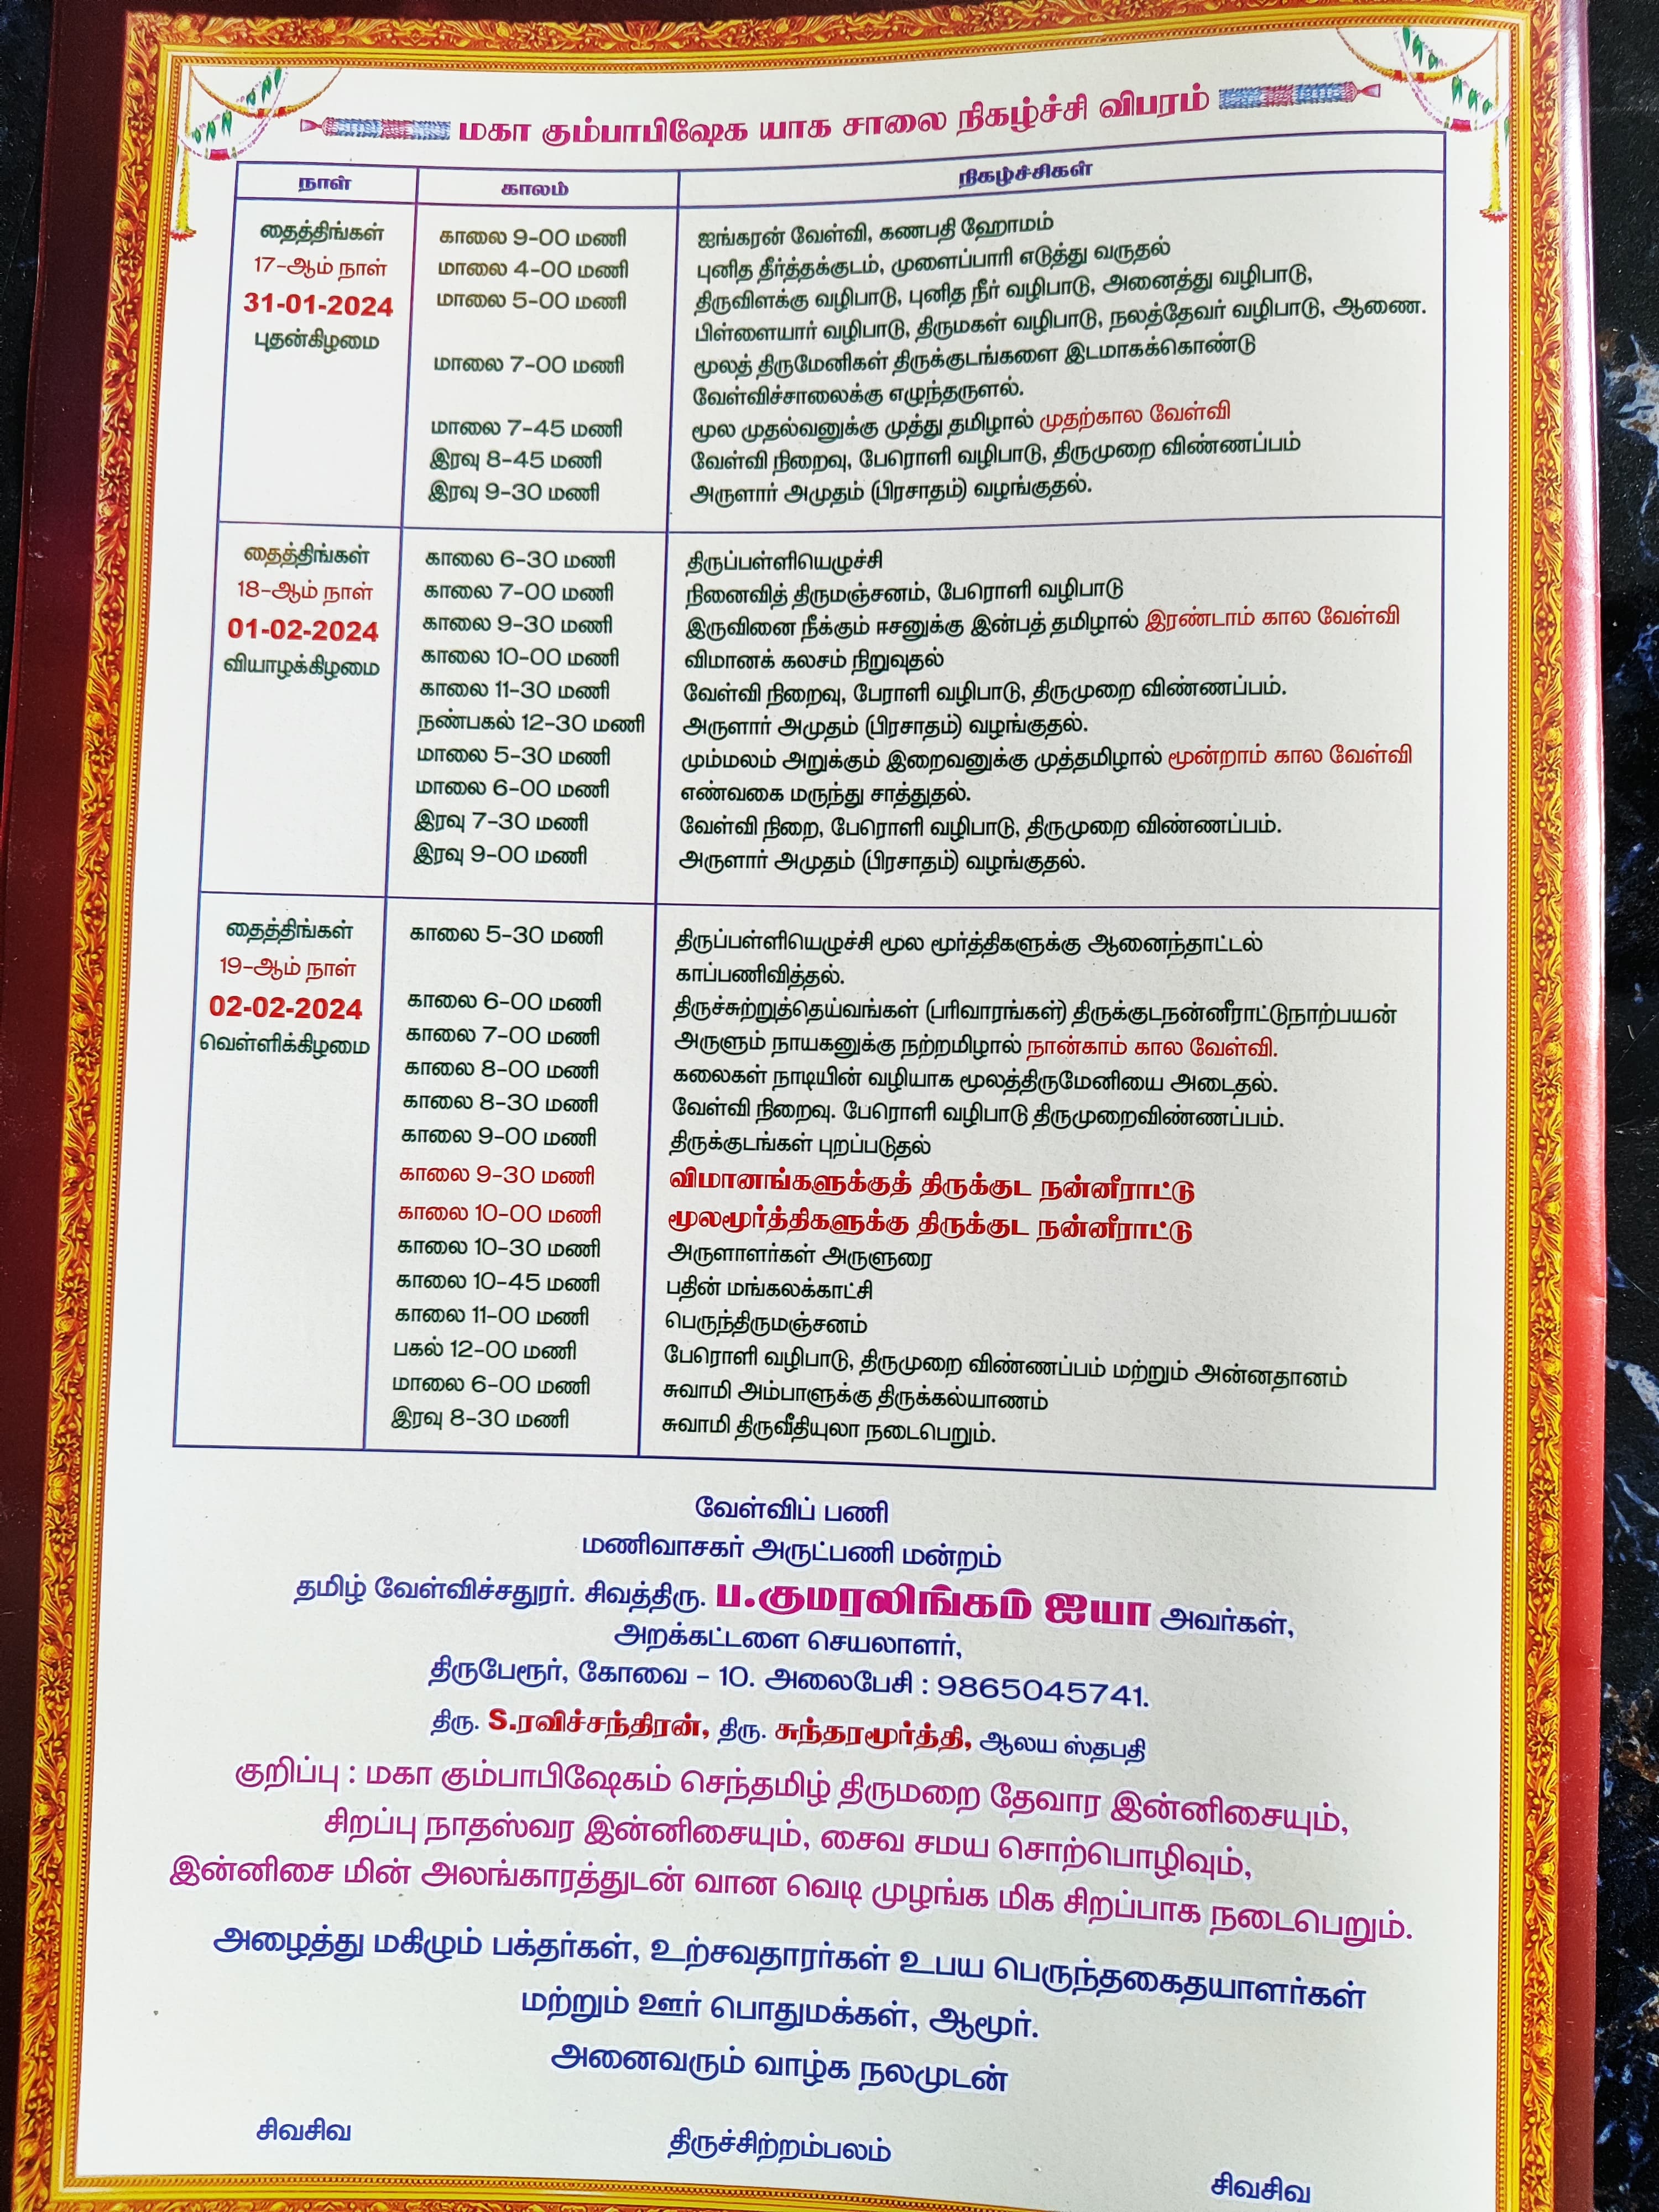 மகா கும்பாபிஷேக யாக சாலை நிகழ்ச்சி விபரம்
நாள் காலம் நிகழ்ச்சிகள்
தைத்திங்கள்
17-ஆம் நாள்
31-01-2024
புதன்கிழமை
காலை 9-00 மணி ஐங்கரன் வேள்வி, கணபதி ஹோமம்
மாலை 4-00 மணி புனித தீர்த்தக்குடம், முளைப்பாரி எடுத்து வருதல்
மாலை 5-00 மணி திருவிளக்கு வழிபாடு, புனித நீர் வழிபாடு, அனைத்து வழிபாடு,
பிள்ளையார் வழிபாடு, திருமகள் வழிபாடு, நலத்தேவர் வழிபாடு, ஆணை.
மாலை 7-00 மணி மூலத் திருமேனிகள் திருக்குடங்களை இடமாகக்கொண்டு
வேள்விச்சாலைக்கு எழுந்தருளல்.
மாலை 7-45 மணி மூல முதல்வனுக்கு முத்து தமிழால் முதற்கால வேள்வி
இரவு 8-45 மணி வேள்வி நிறைவு, பேரொளி வழிபாடு, திருமுறை விண்ணப்பம்
இரவு 9-30 மணி அருளார் அமுதம் (பிரசாதம்) வழங்குதல்.
தைத்திங்கள்
18-ஆம் நாள்
01-02-2024
வியாழக்கிழமை
காலை 6-30 மணி திருப்பள்ளியெழுச்சி
காலை 7-00 மணி நினைவித் திருமஞ்சனம், பேரொளி வழிபாடு
காலை 9-30 மணி இருவினை நீக்கும் ஈசனுக்கு இன்பத் தமிழால் இரண்டாம் கால வேள்வி
காலை 10-00 மணி விமானக் கலசம் நிறுவுதல்
காலை 11-30 மணி வேள்வி நிறைவு, பேராளி வழிபாடு, திருமுறை விண்ணப்பம்.
நண்பகல் 12-30 மணி அருளார் அமுதம் (பிரசாதம்) வழங்குதல்.
மாலை 5-30 மணி மும்மலம் அறுக்கும் இறைவனுக்கு முத்தமிழால் மூன்றாம் கால வேள்வி
மாலை 6-00 மணி எண்வகை மருந்து சாத்துதல்.
இரவு 7-30 மணி வேள்வி நிறை, பேரொளி வழிபாடு, திருமுறை விண்ணப்பம்.
இரவு 9-00 மணி அருளார் அமுதம் (பிரசாதம்) வழங்குதல்.
தைத்திங்கள்
19-ஆம் நாள்
02-02-2024
வெள்ளிக்கிழமை
காலை 5-30 மணி திருப்பள்ளியெழுச்சி மூல மூர்த்திகளுக்கு ஆனைந்தாட்டல்
காப்பணிவித்தல்.
காலை 6-00 மணி திருச்சுற்றுத்தெய்வங்கள் (பரிவாரங்கள்) திருக்குடநன்னீராட்டுநாற்பயன்
காலை 7-00 மணி அருளும் நாயகனுக்கு நற்றமிழால் நான்காம் கால வேள்வி.
காலை 8-00 மணி கலைகள் நாடியின் வழியாக மூலத்திருமேனியை அடைதல்.
காலை 8-30 மணி வேள்வி நிறைவு. பேரொளி வழிபாடு திருமுறைவிண்ணப்பம்.
காலை 9-00 மணி திருக்குடங்கள் புறப்படுதல்
காலை 9-30 மணி விமானங்களுக்குத் திருக்குட நன்னீராட்டு
காலை 10-00 மணி மூலமூர்த்திகளுக்கு திருக்குட நன்னீராட்டு
காலை 10-30 மணி அருளாளர்கள் அருளுரை
காலை 10-45 மணி பதின் மங்கலக்காட்சி
காலை 11-00 மணி பெருந்திருமஞ்சனம்
பகல் 12-00 மணி பேரொளி வழிபாடு, திருமுறை விண்ணப்பம் மற்றும் அன்னதானம்
மாலை 6-00 மணி சுவாமி அம்பாளுக்கு திருக்கல்யாணம்
இரவு 8-30 மணி சுவாமி திருவீதியுலா நடைபெறும்.
வேள்விப் பணி
மணிவாசகர் அருட்பணி மன்றம்
தமிழ் வேள்விச்சதுரர். சிவத்திரு. ப.குமரலிங்கம் ஐயா அவர்கள்,
அறக்கட்டளை செயலாளர்,
திருபேரூர், கோவை - 10. அலைபேசி : 9865045741.
திரு. S.ரவிச்சந்திரன், திரு. சுந்தரமூர்த்தி, ஆலய ஸ்தபதி
குறிப்பு : மகா கும்பாபிஷேகம் செந்தமிழ் திருமறை தேவார இன்னிசையும்,
சிறப்பு நாதஸ்வர இன்னிசையும், சைவ சமய சொற்பொழிவும்,
இன்னிசை மின் அலங்காரத்துடன் வான வெடி முழங்க மிக சிறப்பாக நடைபெறும்.
அழைத்து மகிழும் பக்தர்கள், உற்சவதாரர்கள் உபய பெருந்தகைதயாளர்கள்
மற்றும் ஊர் பொதுமக்கள், ஆமூர்.
அனைவரும் வாழ்க நலமுடன்
சிவசிவ திருச்சிற்றம்பலம் சிவசிவ